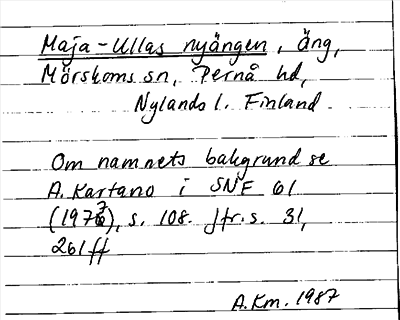 Maja-Ullas nyängen, äng,
Mörskoms sn, Pernå hd,
Nylands l. Finland.
Om namnets bakgrund se
A. Kartano i SNF 61
(1973), s. 108. Jfr. s. 31,
261 ff
A.Km. 1987